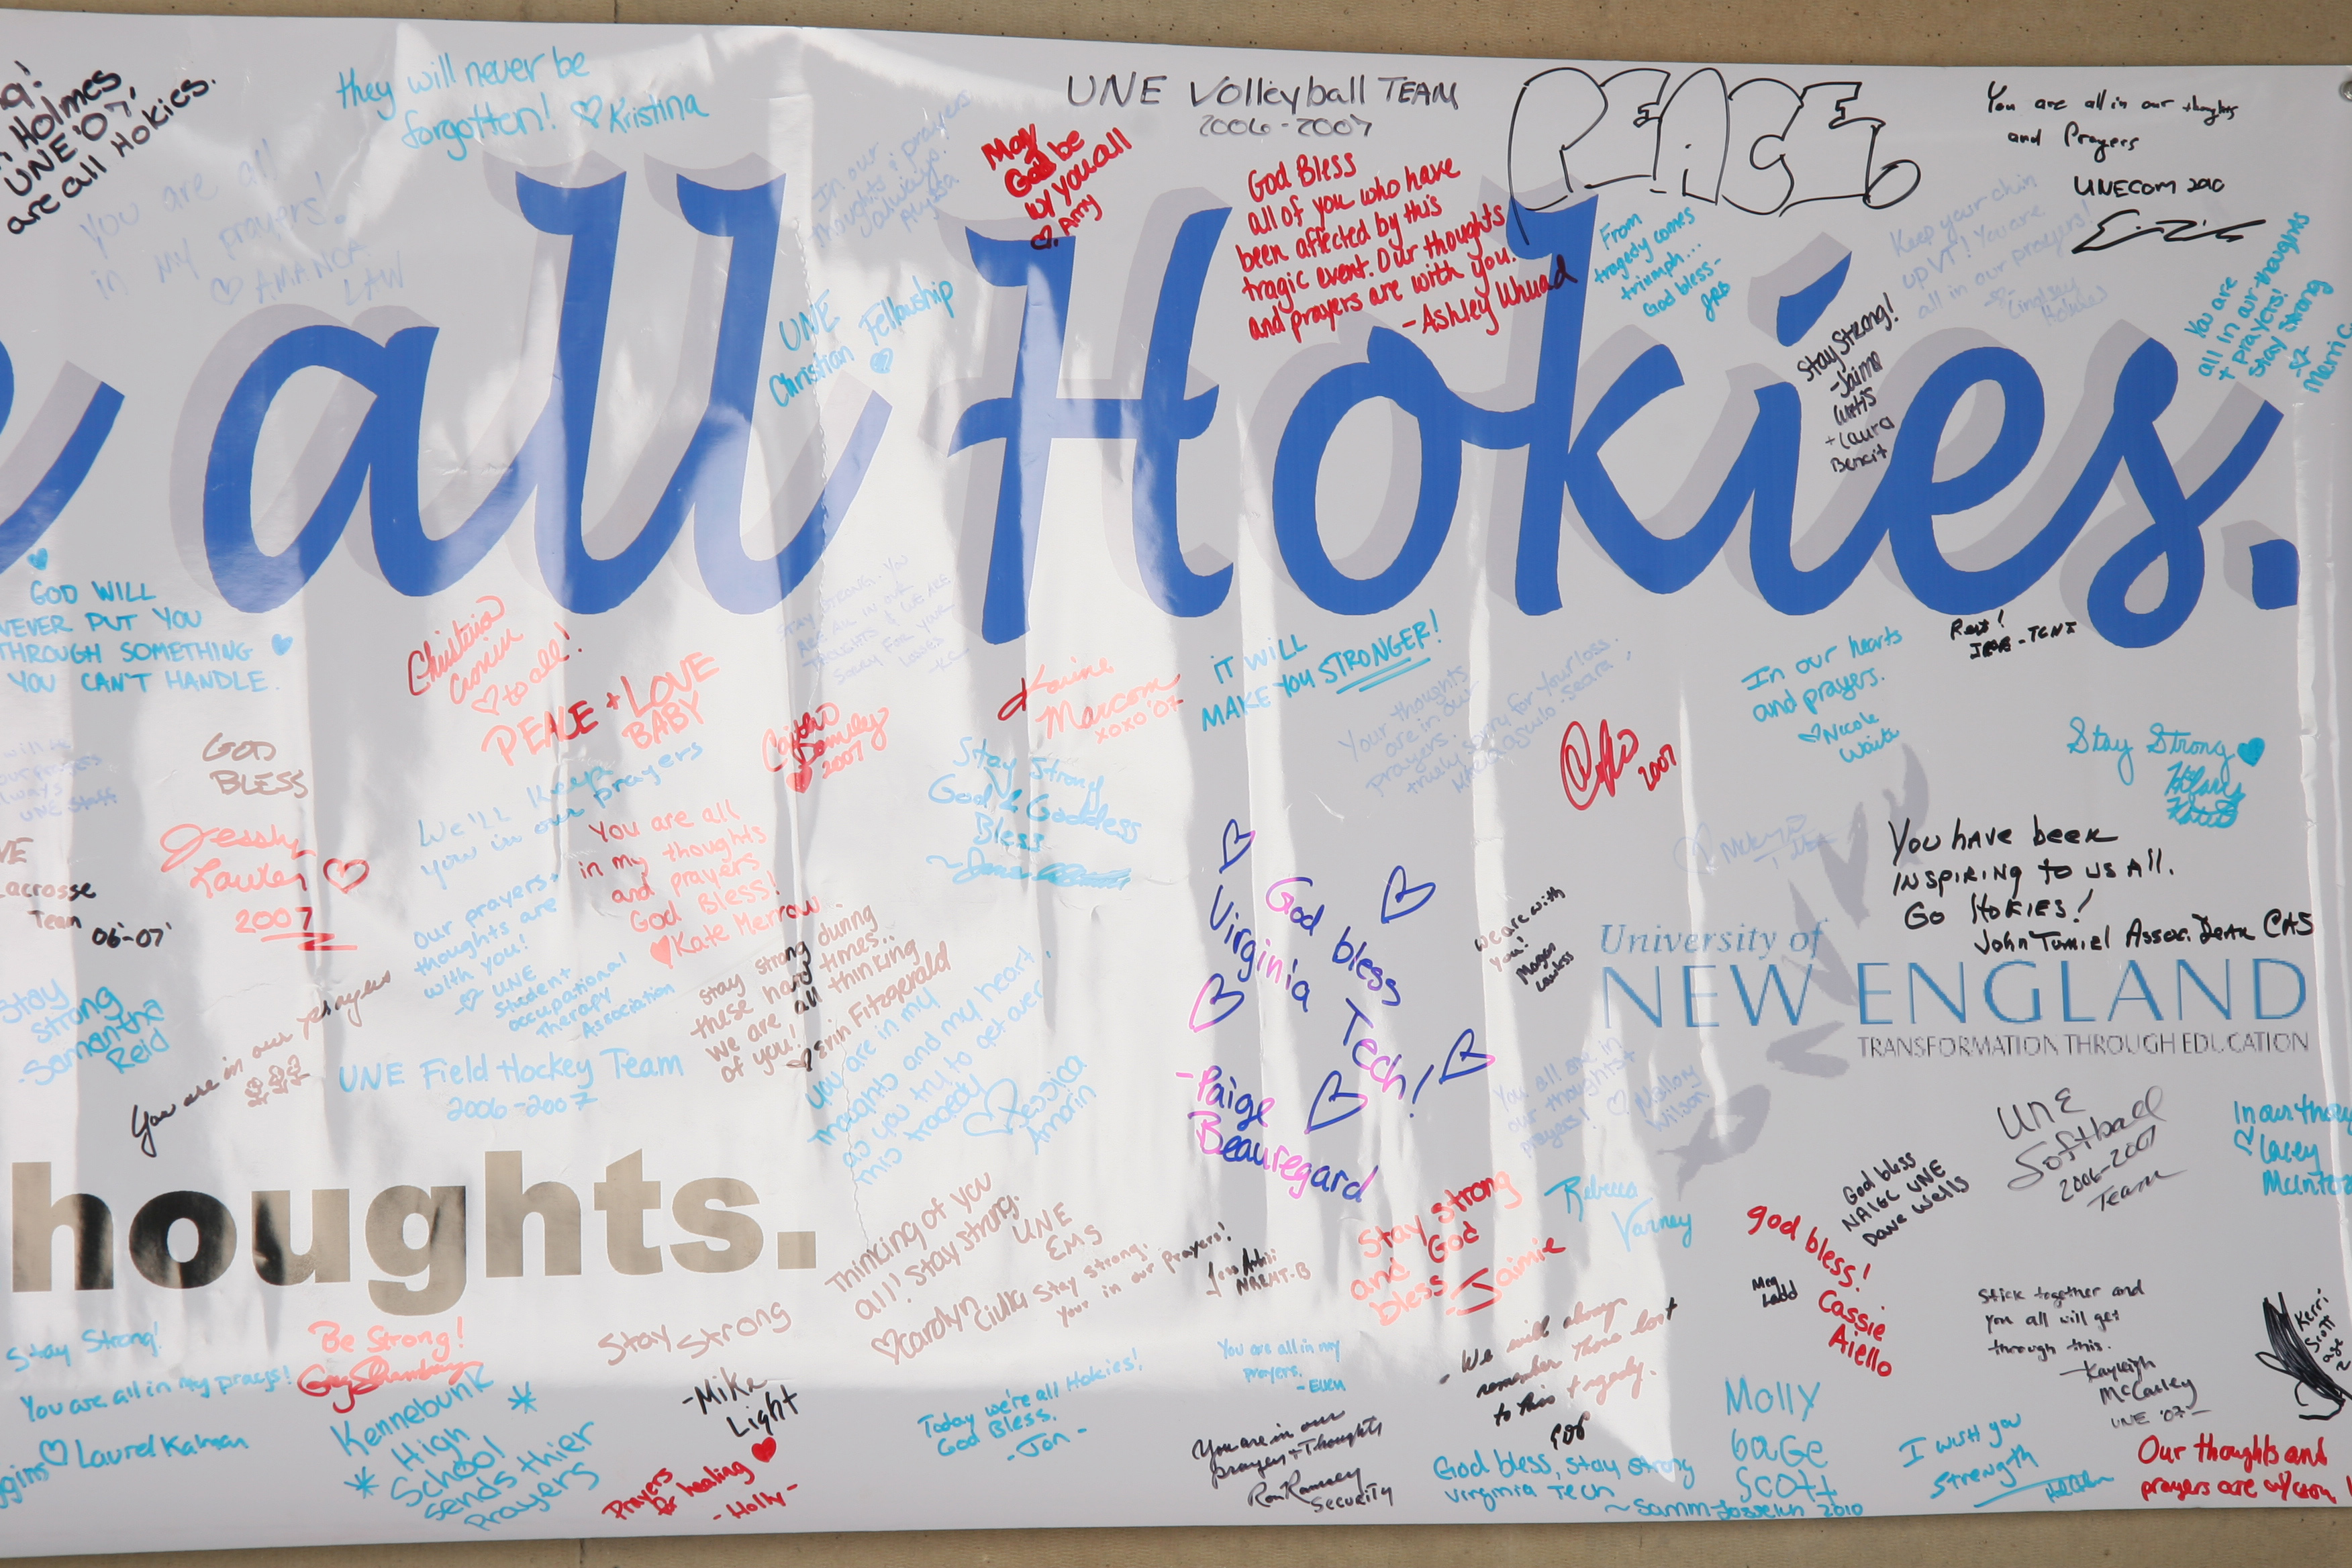 Holmes
UNE '07,
are all Hokies.
they will never be
forgotten! ♡ Kristina
You are all
in my prayers!
♡ AMANDA
LAW
In our
thoughts & prayers
always!
Alyssa
May
God be
w/ you all
♡, Amy
UNE Volleyball TEAM
2006-2007
God Bless
all of you who have
been affected by this
tragic event. Our thoughts
and prayers are with you.
-Ashley
PEACE
From
tragedy comes
triumph...
God bless-
JRB
You are all in our thoughts
and Prayers
UNECOM 2010
Keep your chin
up VT! You are
all in our prayers!
Lindsay
You are
all in our thoughts
+ prayers!
Stay Strong
UNE
Christian Fellowship
Stay Strong!
-Jaime
Curtis
+ Laura
Benoit
all Hokies.
GOD WILL
NEVER PUT YOU
THROUGH SOMETHING
YOU CAN'T HANDLE.
Christina
Cronin
♡ to all!
PEACE + LOVE
BABY
STAY STRONG. YOU
ARE ALL IN OUR
THOUGHTS & WE ARE
Sorry For your
loss.
Karine
Marcom
xoxo '07
IT WILL
MAKE YOU STRONGER!
Your thoughts
are in our
prayers.
truely sorry for your loss.
2007
2007
In our hearts
and prayers.
♡ Nicole
Waite
Stay Strong ♥
GOD
BLESS
2007
Lacrosse
Team 06'-07'
We'll keep
you in our prayers
You are all
in my thoughts
and prayers
God Bless!
♥ Kate Merrow
Stay Strong
God & Goddess
Bless
God bless
Virginia
Tech!
-Paige
Beauregard
we are with
you!
Megan
Lawless
You have been
inspiring to us all.
Go Hokies!
John Tumiel Assoc. Dean CAS
University of
NEW ENGLAND
TRANSFORMATION THROUGH EDUCATION
Stay
strong
-Samantha
Reid
You are in our prayers
our prayers +
thoughts are
with you!
♡ UNE
Student
occupational
Therapy
Association
stay strong during
these hard times..
we are all thinking
of you!
♡ Erin Fitzgerald
UNE Field Hockey Team
2006-2007
You are in my
thoughts and my heart,
as you try to get over
this tragedy
♡ Jessica
Amorin
You all are in
our thoughts +
prayers! ♡ Mallory
Wilson
UNE
Softball
2006-2007
Team
In our thou
♡ Lacey
houghts.
Thinking of you
all! Stay strong.
UNE
EMS
♡ Carolyn
Stay strong.
your in our prayers!
Stay strong
and God
bless
-Jaimie
Rebecca
Varney
God bless
NAIGC UNE
Dave Wells
god bless!
Cassie
Aiello
Meg
Ladd
Stick together and
you all will get
through this.
-Kayleigh
McCarley
UNE '07-
Kerri
Scott
Stay Strong!
You are all in my prays!
♡ Laurel Kalman
Be Strong!
Stay Strong
-Mike
Light
Kennebunk
High
School
sends thier
prayers
Prayers
for healing ♥
-Holly-
Today we're all Hokies!
God Bless.
-Jon-
You are all in my
prayers.
-Ellen
You are in our
prayers + Thoughts
Ron Ramsey
Security
- We will always
remember those lost
to this tragedy.
God bless, stay strong
Virginia Tech
~Samm Josselyn 2010
Molly
Gage
Scott
I wish you
strength
Our thoughts and
prayers are w/you